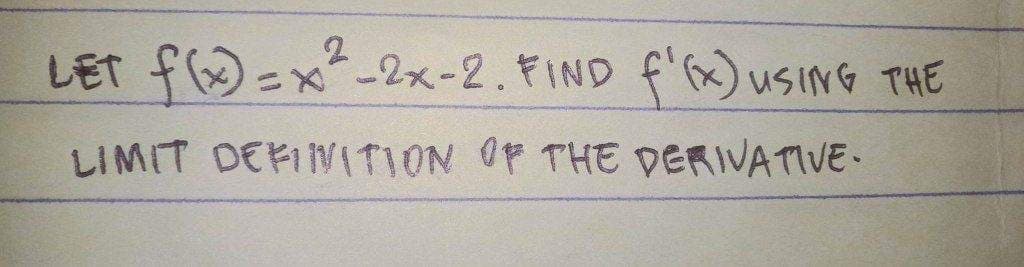 LET f(x) = x² - 2x - 2. FIND f'(x) USING THE
LIMIT DEFINITION OF THE DERIVATIVE.